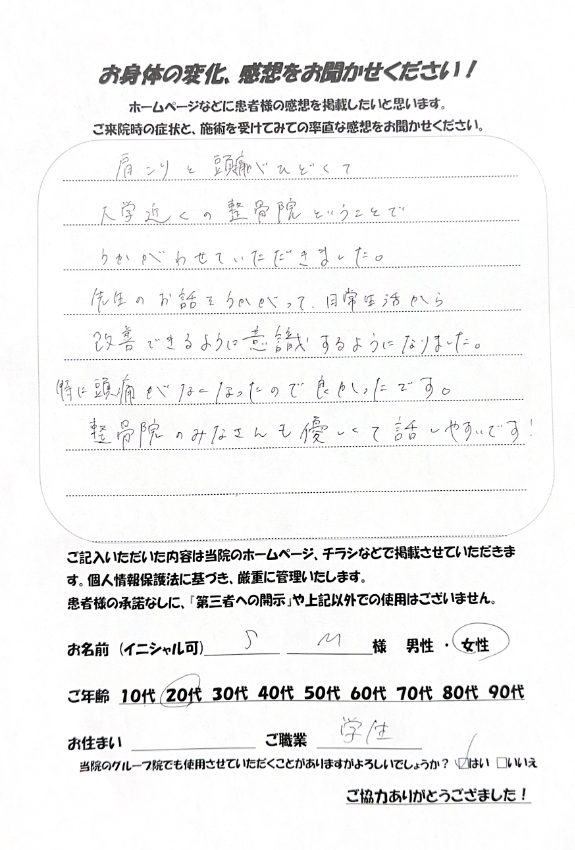 お身体の変化、感想をお聞かせください！
ホームページなどに患者様の感想を掲載したいと思います。
ご来院時の症状と、施術を受けてみての率直な感想をお聞かせください。
肩こりと頭痛がひどくて
大学近くの整骨院ということで
うかがわせていただきました。
先生のお話をうかがって、日常生活から
改善できるように意識するようになりました。
特に頭痛がなくなったので良かったです。
整骨院のみなさんも優しくて話しやすいです!
ご記入いただいた内容は当院のホームページ、チラシなどで掲載させていただきま
す。個人情報保護法に基づき、厳重に管理いたします。
患者様の承諾なしに、「第三者への開示」や上記以外での使用はございません。
お名前（イニシャル可） S M 様 男性・女性
ご年齢 10代 20代 30代 40代 50代 60代 70代 80代 90代
お住まい ご職業 学生
当院のグループ院でも使用させていただくことがありますがよろしいでしょうか？ ☑はい □いいえ
ご協力ありがとうござました！